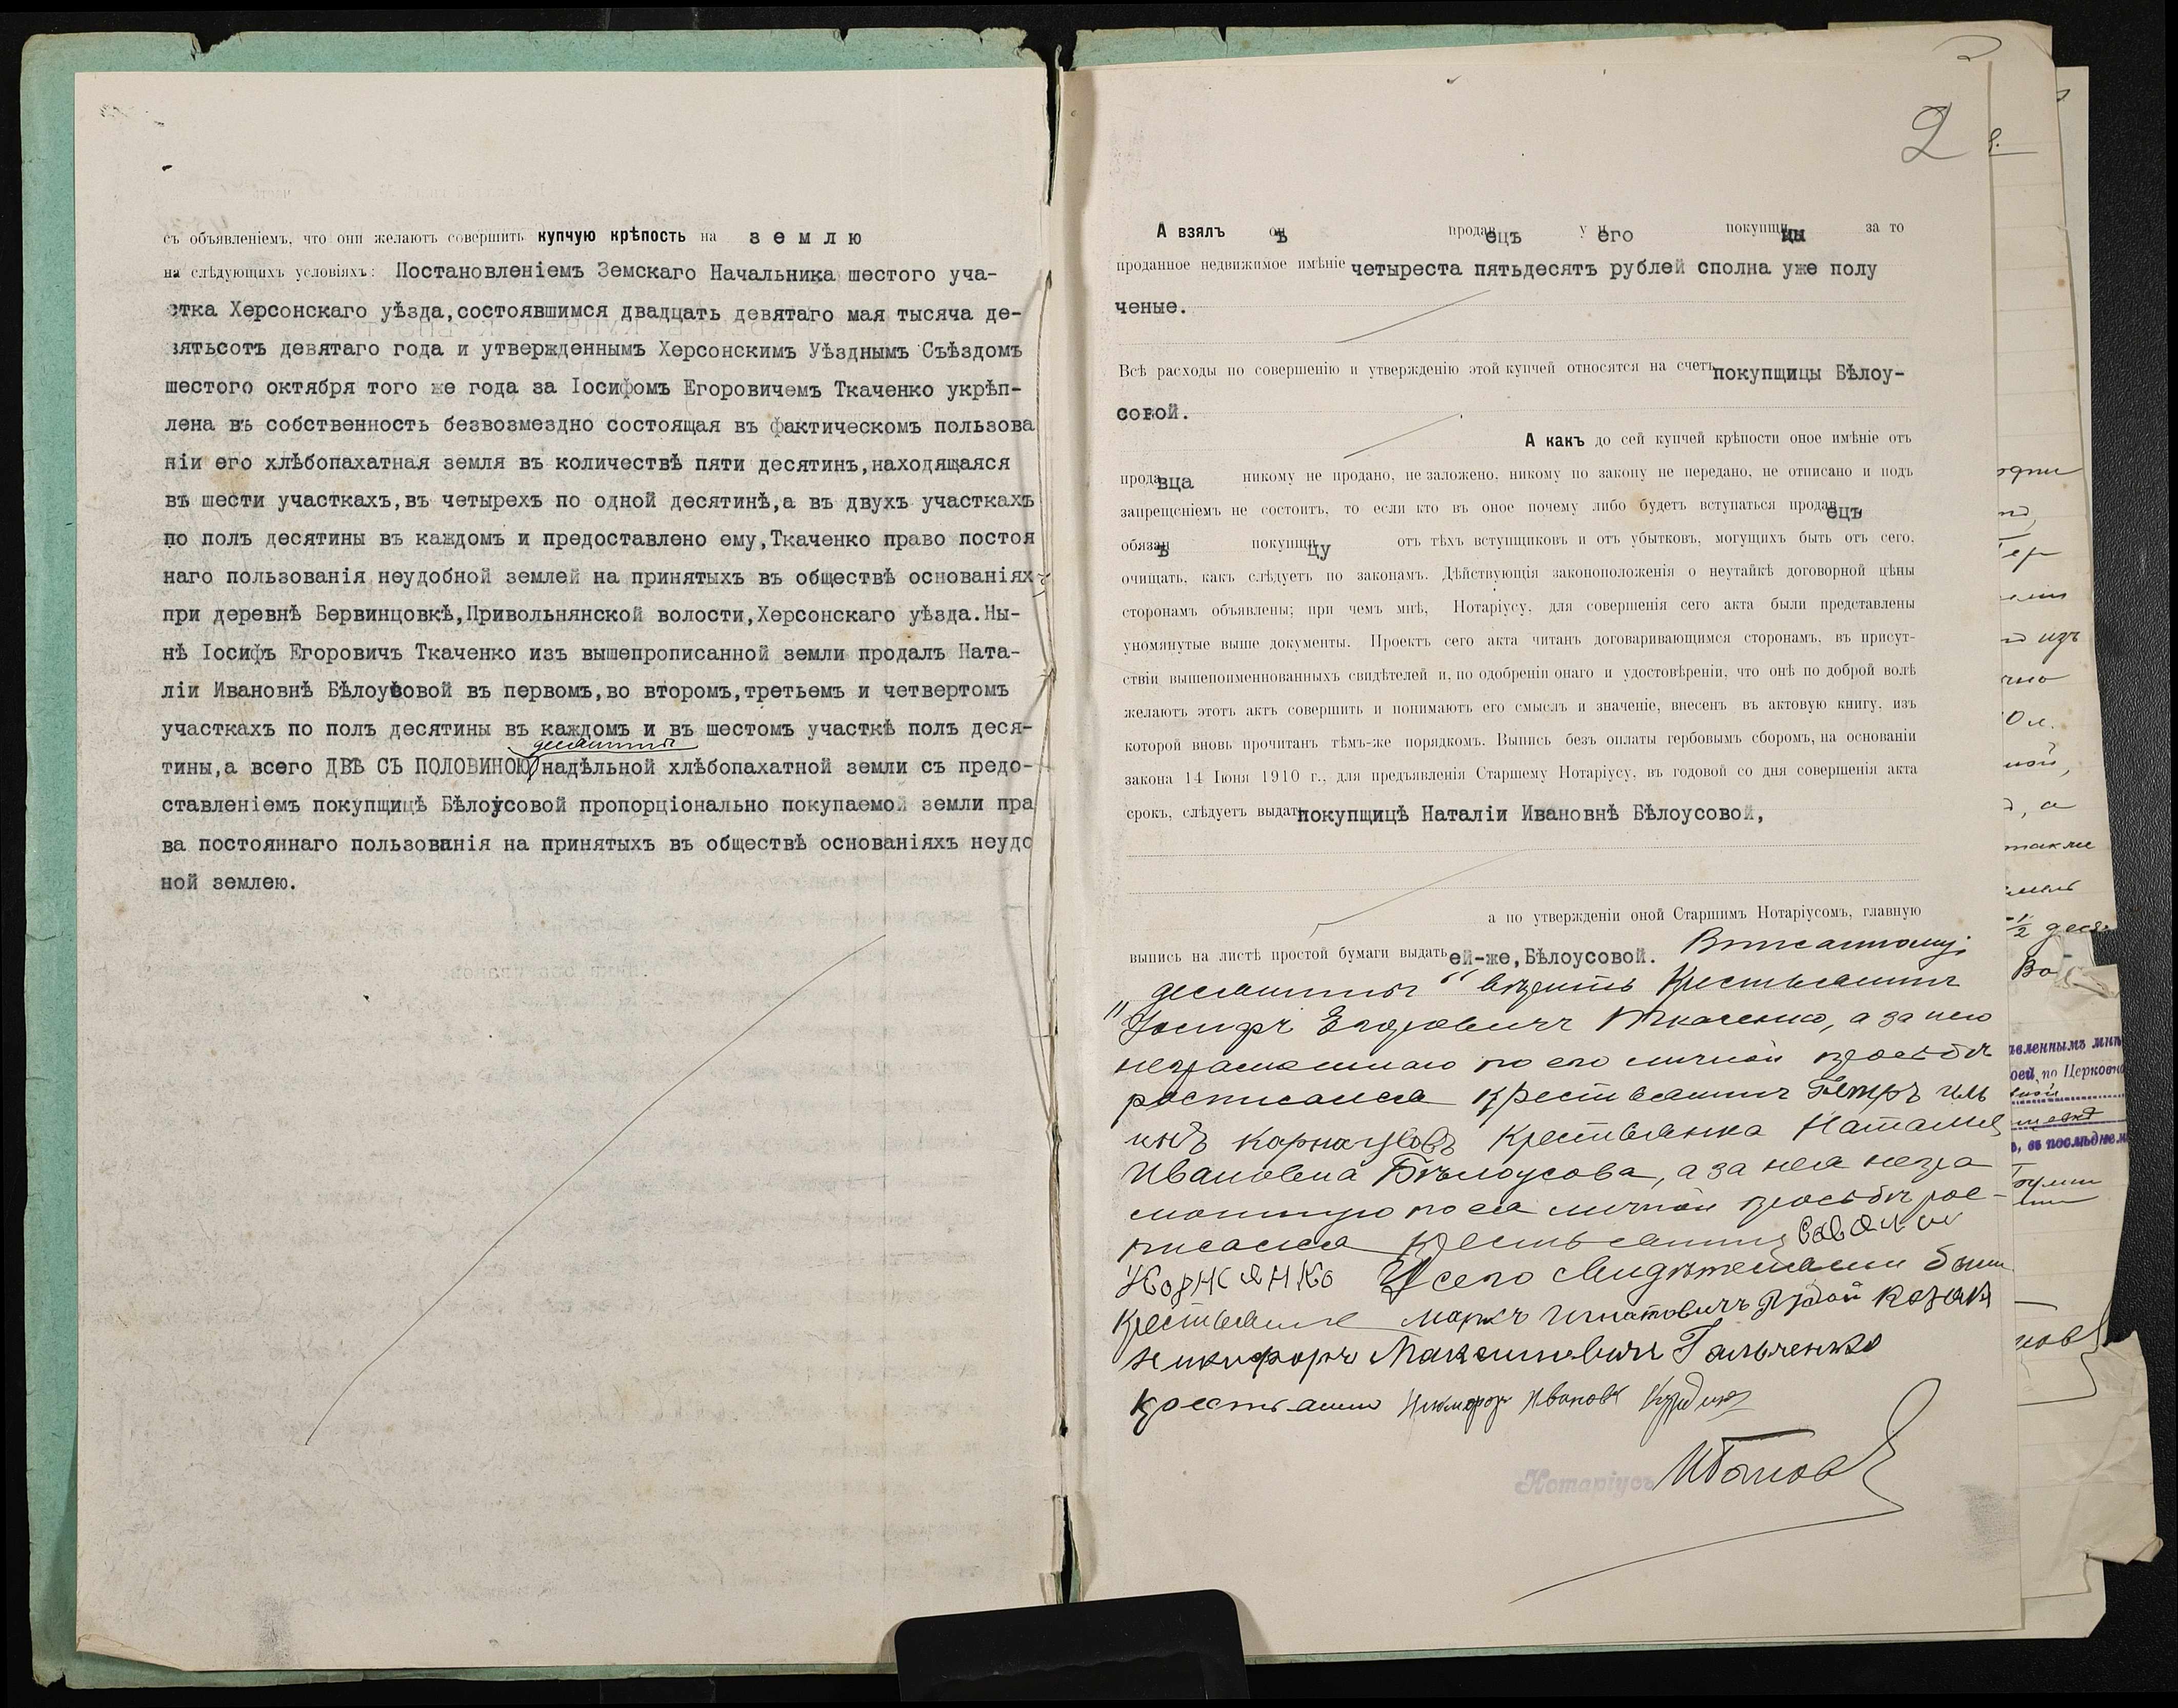 съ объявленіемъ, что они желаютъ совершить купчую крѣпость на землю
на слѣдующихъ условіяхъ: Постановленіемъ Земскаго Начальника шестого уча-
стка Херсонскаго уѣзда,состоявшимся двадцать девятаго мая тысяча де-
вятьсотъ девятаго года и утвержденнымъ Херсонскимъ Уѣзднымъ Съѣздомъ
шестого октября того же года за Іосифомъ Егоровичемъ Ткаченко укрѣп-
лена въ собственность безвозмездно состоящая въ фактическомъ пользова
ніи его хлѣбопахатная земля въ количествѣ пяти десятинъ,находящаяся
въ шести участкахъ,въ четырехъ по одной десятинѣ,а въ двухъ участкахъ
по полъ десятины въ каждомъ и предоставлено ему,Ткаченко право постоя
наго пользованія неудобной землей на принятыхъ въ обществѣ основаніях
при деревнѣ Бервинцовкѣ,Привольнянской волости,Херсонскаго уѣзда.Ны-
нѣ Іосифъ Егоровичъ Ткаченко изъ вышепрописанной земли продалъ Ната-
ліи Ивановнѣ Бѣлоусовой въ первомъ,во второмъ,третьемъ и четвертомъ
участкахъ по полъ десятины въ каждомъ и въ шестомъ участкѣ полъ деся-
десятины
тины,а всего ДВѢ СЪ ПОЛОВИНОЮ надѣльной хлѣбопахатной земли съ предо-
ставленіемъ покупщицѣ Бѣлоусовой пропорціонально покупаемой земли пра
ва постояннаго пользованія на принятыхъ въ обществѣ основаніяхъ неудо
ной землею.
2
А взялъ онъ продавецъ у него покупщицы за то
проданное недвижимое имѣніе четыреста пятьдесятъ рублей сполна уже полу
ченые.
Всѣ расходы по совершенію и утвержденію этой купчей относятся на счетъ покупщицы Бѣлоу-
совой.
А какъ до сей купчей крѣпости оное имѣніе отъ
продавца никому не продано, не заложено, никому по закону не передано, не отписано и подъ
запрещеніемъ не состоитъ, то если кто въ оное почему либо будетъ вступаться продавецъ
обязанъ покупщицу отъ тѣхъ вступщиковъ и отъ убытковъ, могущихъ быть отъ сего,
очищать, какъ слѣдуетъ по законамъ. Дѣйствующія законоположенія о неутайкѣ договорной цѣны
сторонамъ объявлены; при чемъ мнѣ, Нотаріусу, для совершенія сего акта были представлены
упомянутые выше документы. Проектъ сего акта читанъ договаривающимся сторонамъ, въ присут-
ствіи вышепоименнованныхъ свидѣтелей и, по одобреніи онаго и удостовѣреніи, что онѣ по доброй волѣ
желаютъ этотъ актъ совершить и понимаютъ его смыслъ и значеніе, внесенъ въ актовую книгу, изъ
которой вновь прочитанъ тѣмъ-же порядкомъ. Выпись безъ оплаты гербовымъ сборомъ, на основаніи
закона 14 Іюня 1910 г., для предъявленія Старшему Нотаріусу, въ годовой со дня совершенія акта
срокъ, слѣдуетъ выдать покупщицѣ Наталіи Ивановнѣ Бѣлоусовой,
а по утвержденіи оной Старшимъ Нотаріусомъ, главную
выпись на листѣ простой бумаги выдать ей-же,Бѣлоусовой. Вписанному:
„десятины“ вѣрить Крестьянинъ
Іосифъ Егоровичъ Ткаченко, а за него
неграмотнаго по его личной просьбѣ
росписался крестьянинъ Петръ
Карнауховъ Крестьянка Наталія
Ивановна Бѣлоусова, а за нея негра
мотную по ея личной просьбѣ рос-
писался крестьянинъ
У сего свидѣтелями были
Крестьяне Маркъ Игнатовичъ
Никифоръ Максимовичъ Гальченко
крестьянинъ Никифоръ Ивановъ
Нотаріусъ